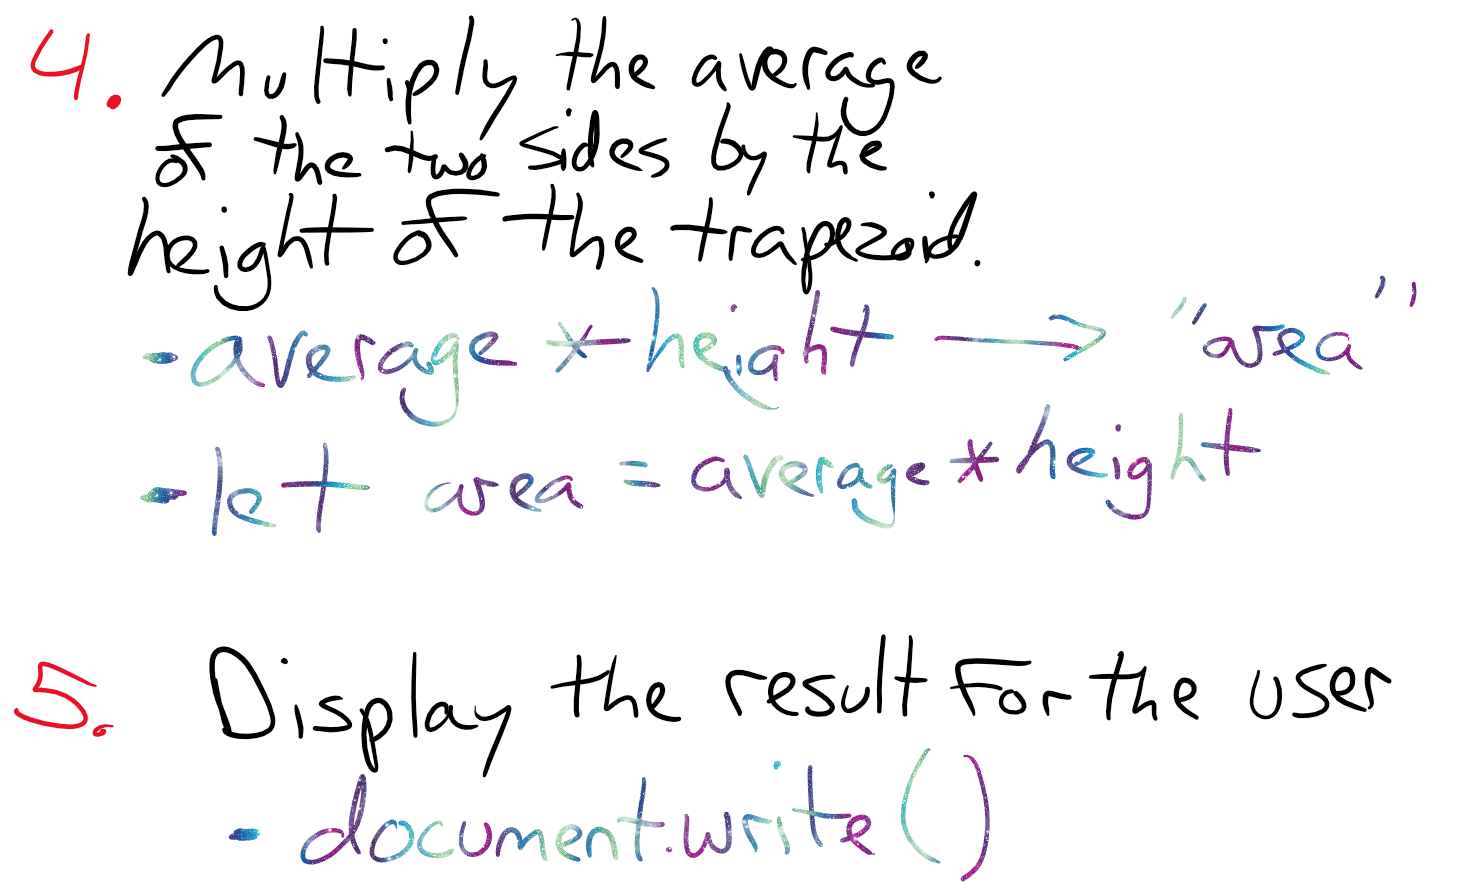 4. Multiply the average
of the two sides by the
height of the trapezoid.
- average * height → "area"
- let area = average * height
5. Display the result for the user
- document.write()